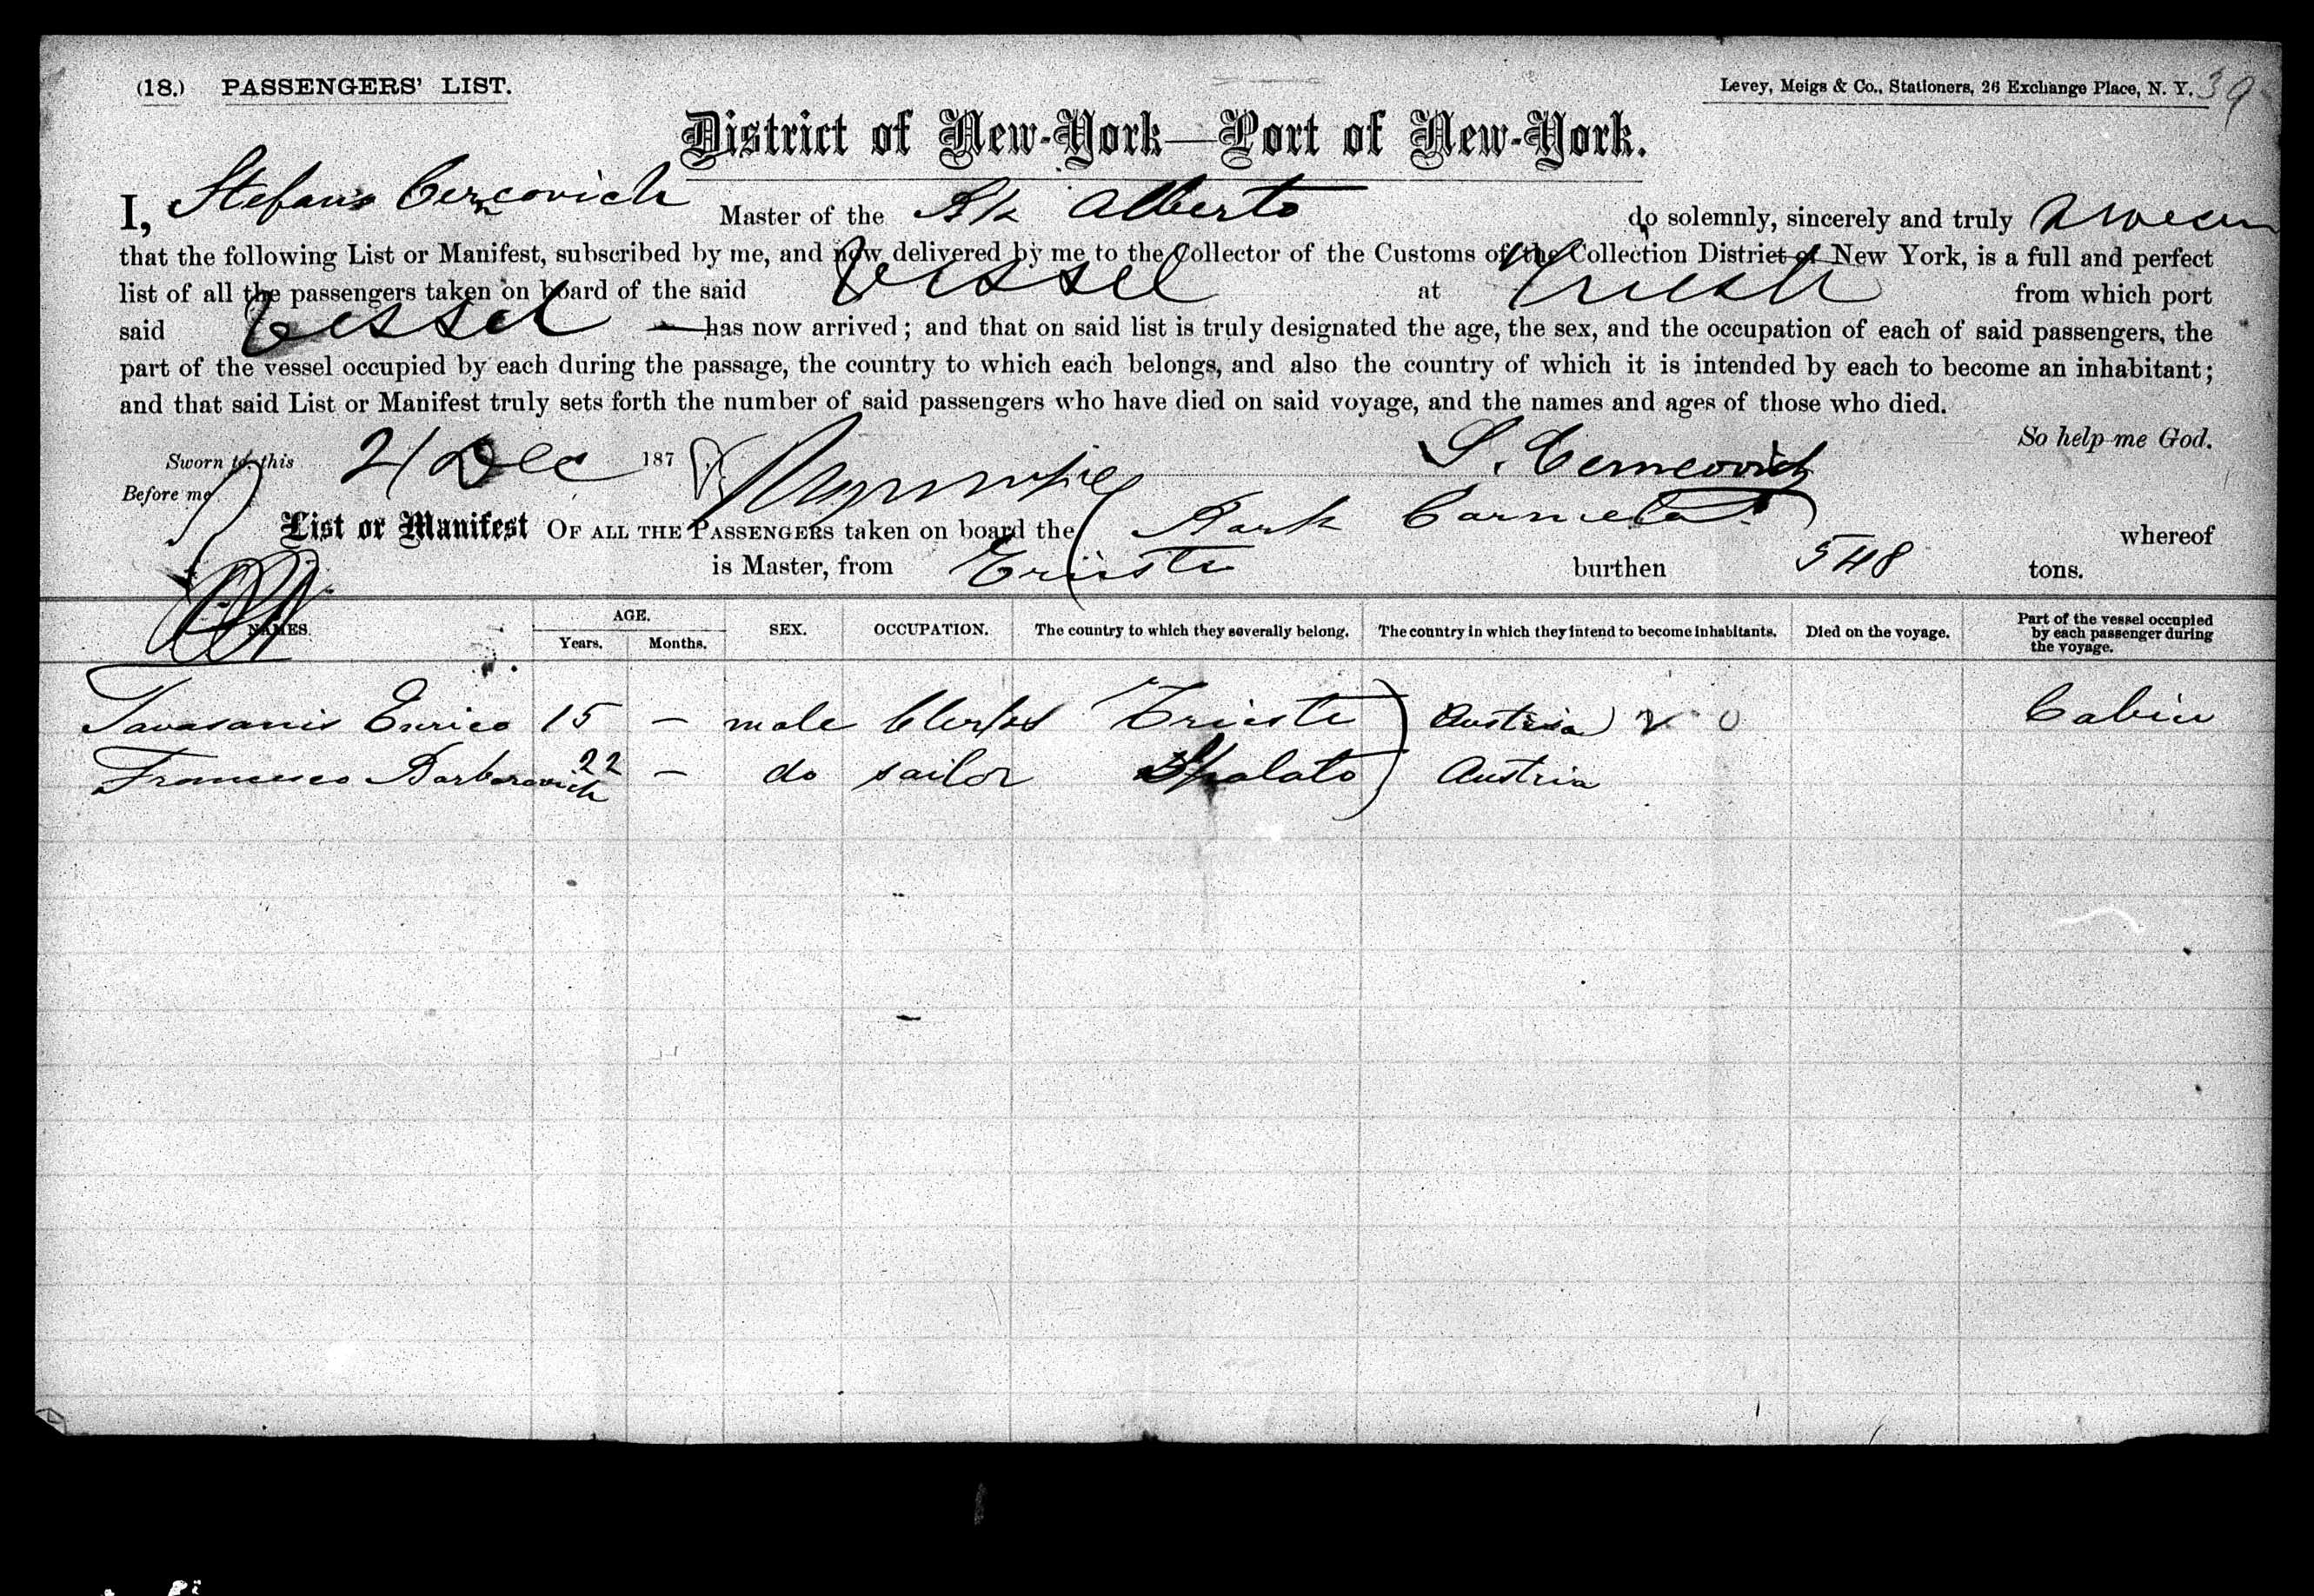 (18.) PASSENGERS' LIST.
Levey, Meigs & Co., Stationers, 26 Exchange Place, N. Y. 39
District of New-York—Port of New-York.
I, Stefano Master of the Bk Alberto do solemnly, sincerely and truly swear
that the following List or Manifest, subscribed by me, and now delivered by me to the Collector of the Customs of the Collection District of New York, is a full and perfect
list of all the passengers taken on board of the said Vessel at Triest from which port
said Vessel has now arrived; and that on said list is truly designated the age, the sex, and the occupation of each of said passengers, the
part of the vessel occupied by each during the passage, the country to which each belongs, and also the country of which it is intended by each to become an inhabitant;
and that said List or Manifest truly sets forth the number of said passengers who have died on said voyage, and the names and ages of those who died.
So help me God.
Sworn to this 21 Dec 187
Before me
List or Manifest OF ALL THE PASSENGERS taken on board the Bark Carmela whereof
is Master, from Trieste burthen 548 tons.
NAMES. AGE. Years. Months. SEX. OCCUPATION. The country to which they severally belong. The country in which they intend to become inhabitants. Died on the voyage. Part of the vessel occupied by each passenger during the voyage.
Enrico 15 — male Trieste Austria Cabin
Francesco Barbarovich 22 — do sailor Spalato Austria